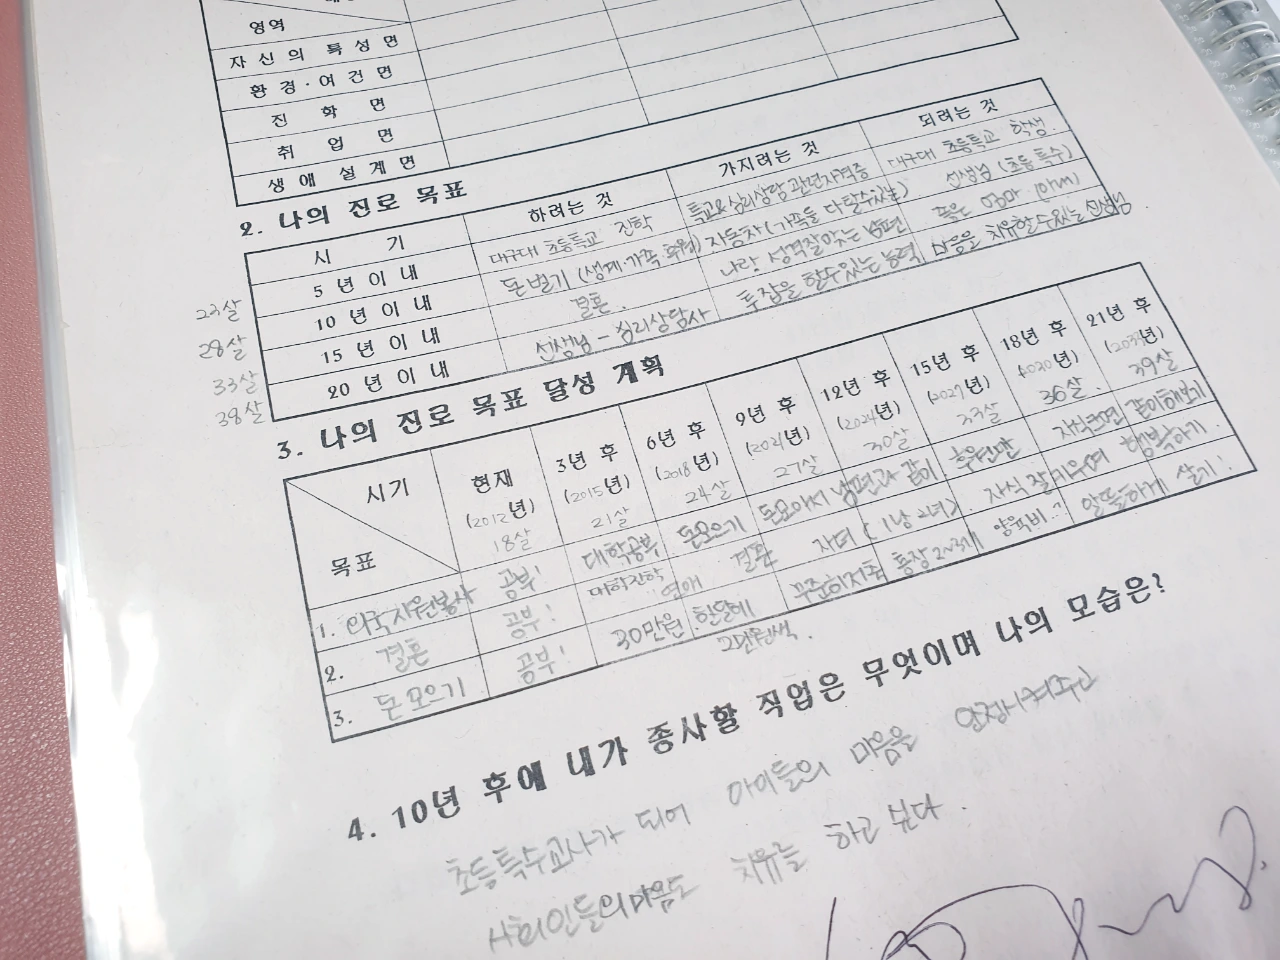 영역
자신의 특성면
환경·여건면
진 학 면
취 업 면
생애 설계면
2. 나의 진로 목표
시 기 하려는 것 가지려는 것 되려는 것
23살 5년이내 대구대 초등특교 진학 특교&심리상담 관련자격증 대구대 초등특교 학생.
28살 10년이내 돈벌기 (생계·가족 후원) 자동차 (가족들 다 탈수있는) 선생님 (초등 특수)
33살 15년이내 결혼. 나랑 성격잘맞는 남편 좋은 엄마
38살 20년이내 선생님 - 심리상담사 투잡을 할수있는 능력 마음을 치유할수있는 선생님
3. 나의 진로 목표 달성 계획
시기 현재 3년 후 6년 후 9년 후 12년 후 15년 후 18년 후 21년 후
(2012년) (2015년) (2018년) (2021년) (2024년) (2027년) (2030년) (2033년)
목표 18살 21살 24살 27살 30살 33살 36살. 39살
1. 외국 자원봉사 공부! 대학공부 돈모으기 돈모아서 남편과 같이 후원만 자식크면 같이해보기
2. 결혼 공부! 대학진학 연애 결혼 자녀 (1남 2녀). 자식 잘키우며 행복하기.
3. 돈모으기 공부! 30만원 한달에 2만원씩. 꾸준히저축 통장 2개 양육비 알뜰하게 살기!
4. 10년 후에 내가 종사할 직업은 무엇이며 나의 모습은?
초등특수교사가 되어 아이들의 마음을 안정시켜주고
사회인들의마음도 치유를 하고 싶다.